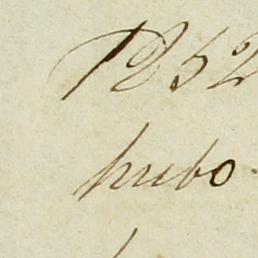 1252
hubo